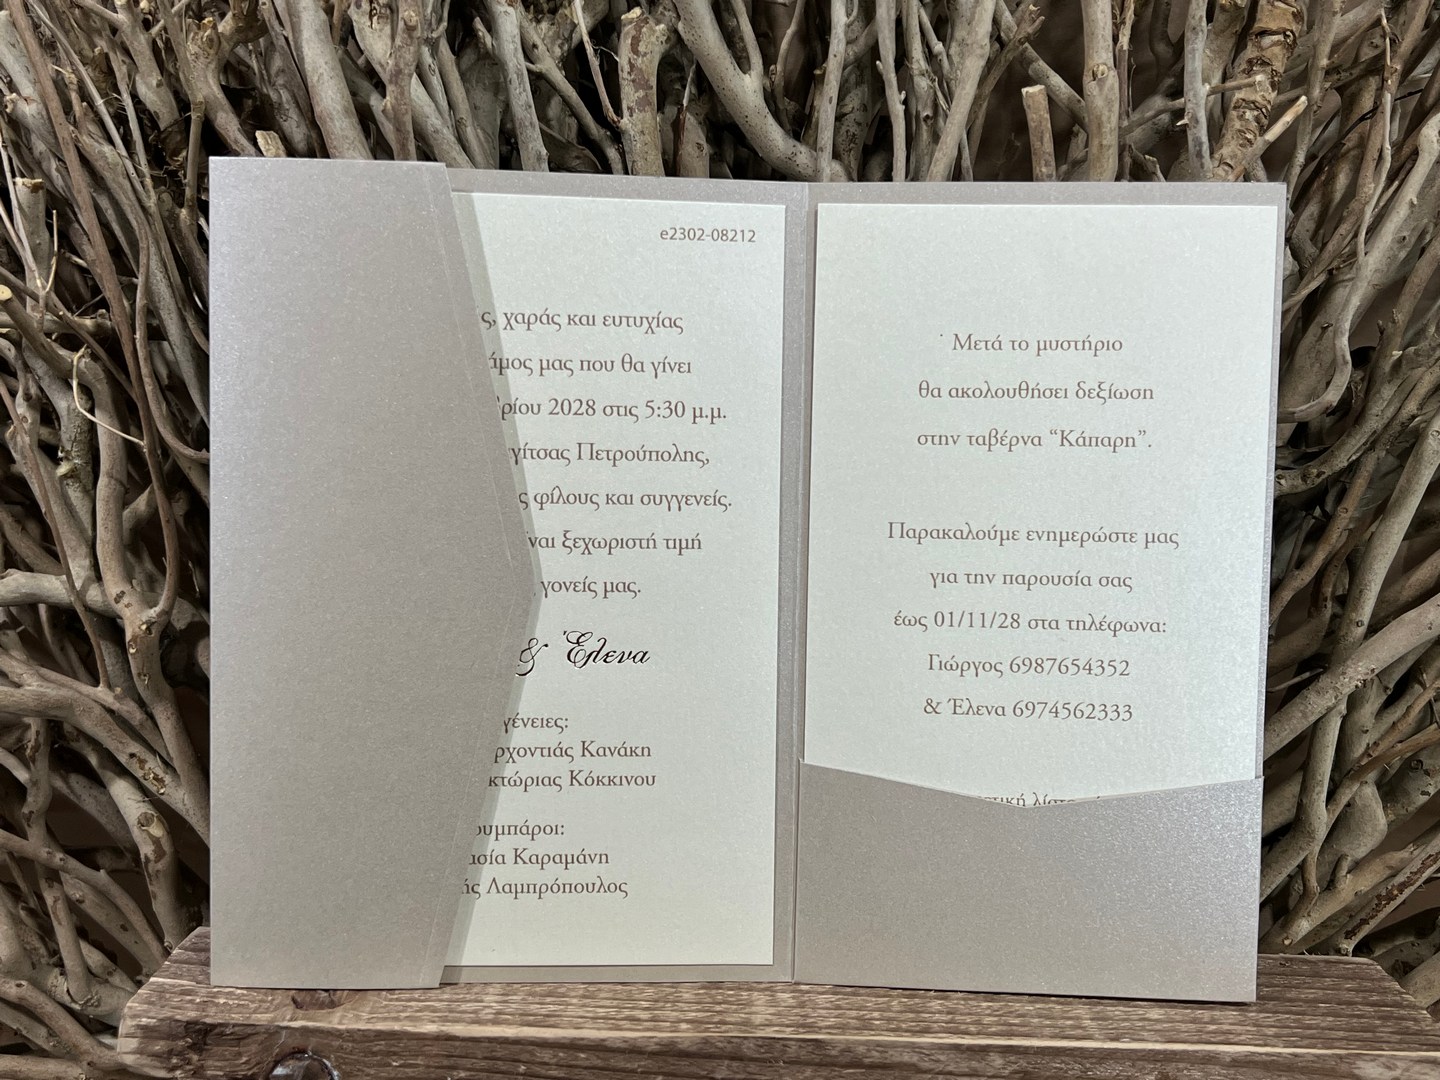 e2302-08212
χαράς και ευτυχίας
μας που θα γίνει
2028 στις 5:30 μ.μ.
Πετρούπολης,
φίλους και συγγενείς.
ξεχωριστή τιμή
γονείς μας.
& Έλενα
Κανάκη
Κόκκινου
Καραμάνη
Λαμπρόπουλος
Μετά το μυστήριο
θα ακολουθήσει δεξίωση
στην ταβέρνα “Κάπαρη”.
Παρακαλούμε ενημερώστε μας
για την παρουσία σας
έως 01/11/28 στα τηλέφωνα:
Γιώργος 6987654352
& Έλενα 6974562333